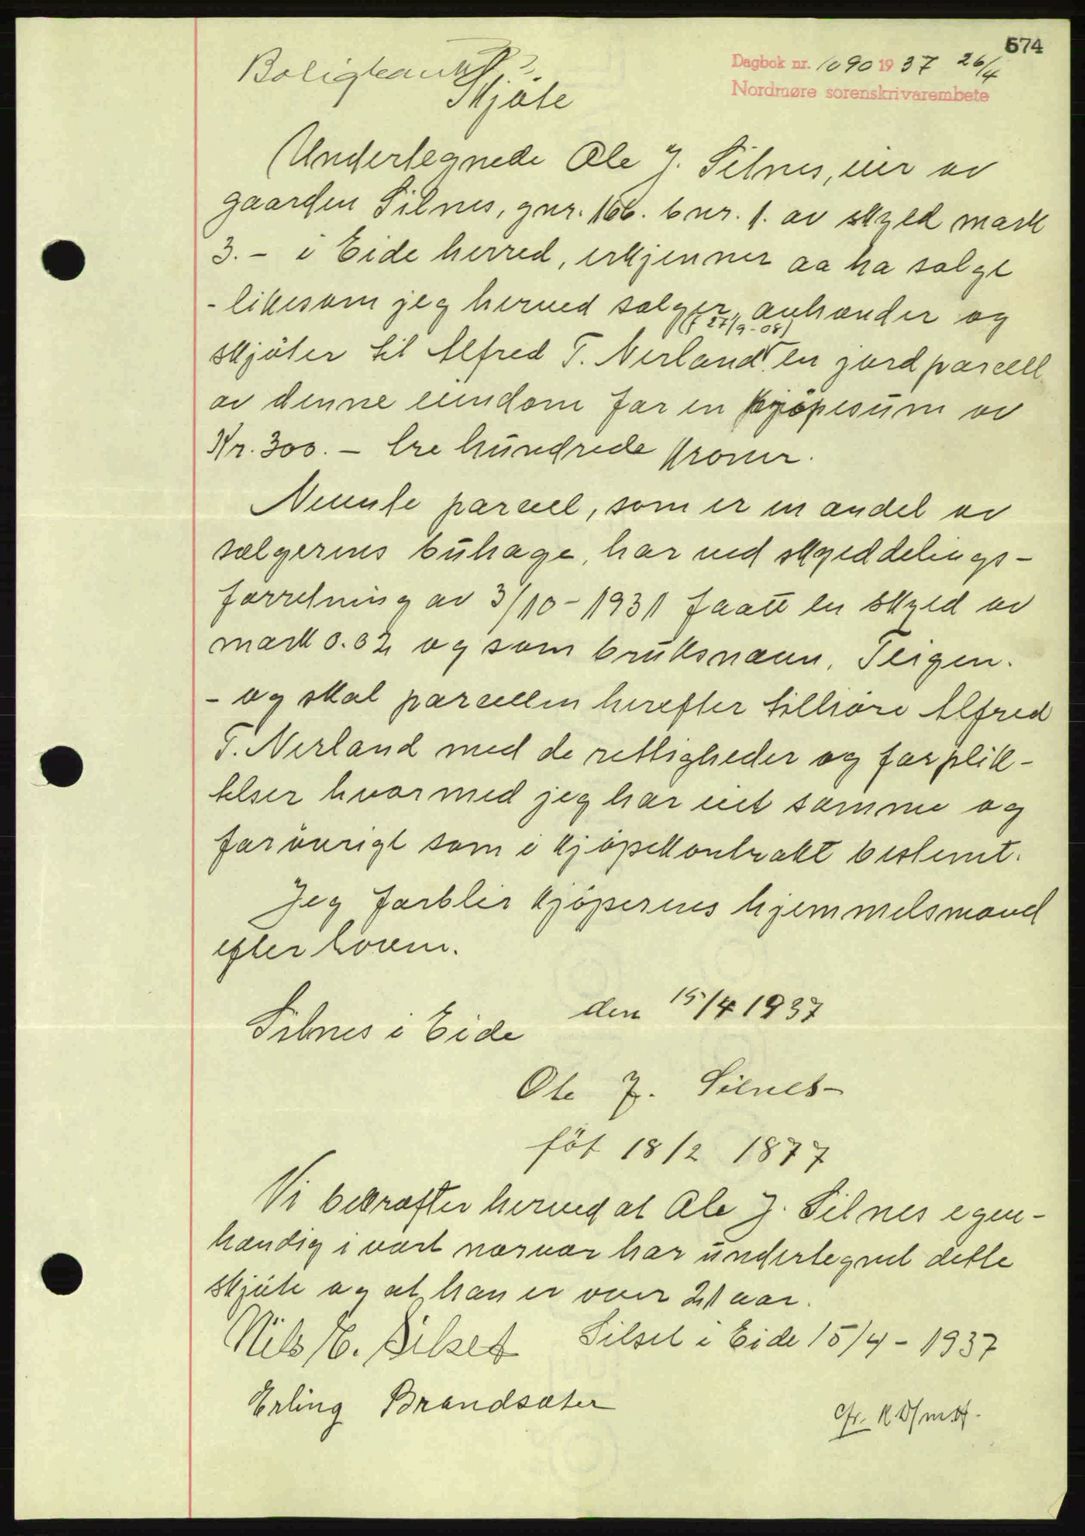 574
Dagbok nr. 1090 19 37 26/4
Nordmøre sorenskrivarembete
Skjöte
Undertegnede Ole J. Silnes, eier av
gaarden Silnes, gnr. 166. bnr. 1. av skyld mark
3.- i Eide herred, erkjenner aa ha solgt
- likesom jeg herved sælger, avhænder og
(f 27/9-08)
skjöter til Alfred T. Nerland en jordparcell
av denne eiendom for en kjöpesum av
Kr. 300.- tre hundrede kroner.
Nevnte parcel, som er en andel av
sælgerens buhage, har ved skylddelings-
forretning av 3/10-1931 faatt en skyld av
mark 0.02 og som bruksnavn, Teigen.
- og skal parcellen herefter tilhöre Alfred
T. Nerland med de rettigheder og forplik-
telser hvormed jeg har eiet samme og
forövrigt som i kjöpekontrakt bestemt.
Jeg forblir kjöperens hjemmelsmand
efter loven.
Silnes i Eide den 15/4 1937
Ole J. Silnes
föt 18/2 1877
Vi bekræfter herved at Ole J. Silnes egen-
hændig i vort nærvær har undertegnet dette
skjöte og at han er over 21 aar.
Nils E. Silset Silset i Eide 15/4-1937
Erling Brandsæter
cfr.